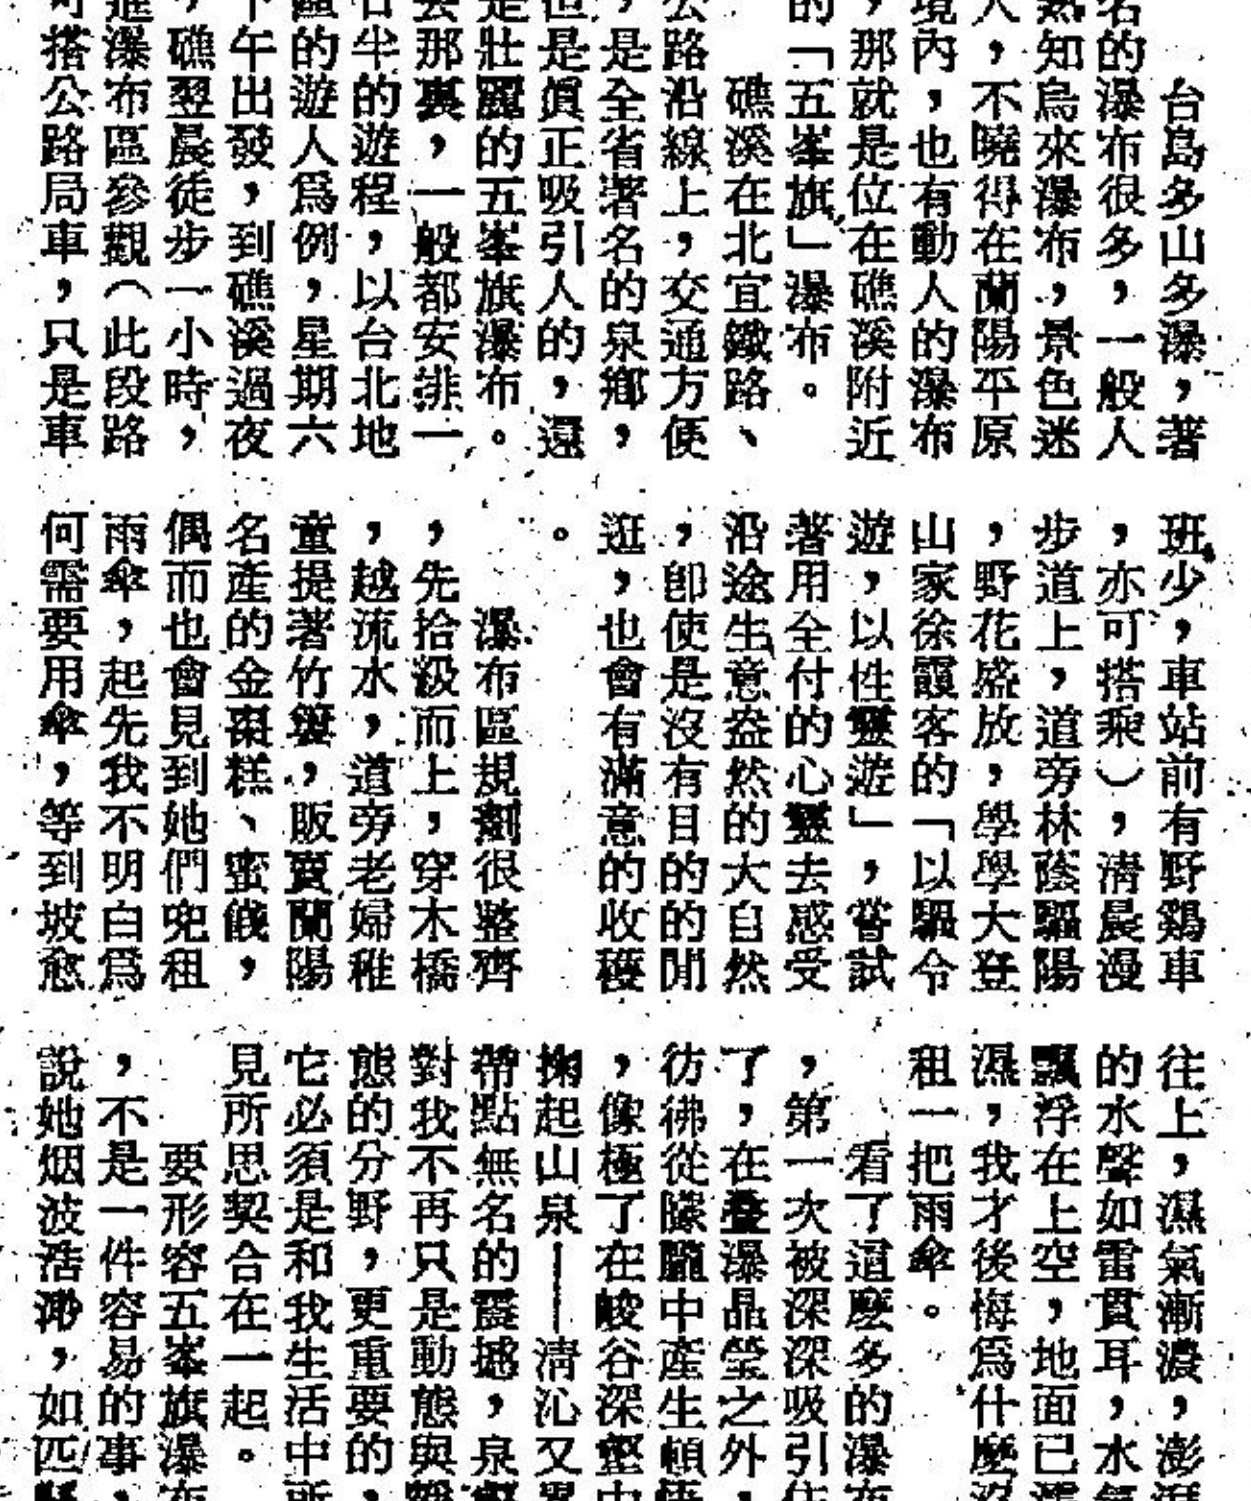 台島多山多瀑，著
名的瀑布很多，一般人
熟知烏來瀑布，景色迷
人，不曉得在蘭陽平原
境內，也有動人的瀑布
，那就是位在礁溪附近
的「五峯旗」瀑布。
礁溪在北宜鐵路、
公路沿線上，交通方便
，是全省著名的泉鄉，
但是眞正吸引人的，還
是壯麗的五峯旗瀑布。
去那裏，一般都安排一
日半的遊程，以台北地
區的遊人爲例，星期六
下午出發，到礁溪過夜
，礁翌晨徒步一小時，
進瀑布區參觀（此段路
可搭公路局車，只是車
班少，車站前有野鷄車
，亦可搭乘），淸晨漫
步道上，道旁林蔭驅陽
，野花盛放，學學大登
山家徐霞客的「以驅令
遊，以性靈遊」，嘗試
著用全付的心靈去感受
沿途生意盎然的大自然
，卽使是沒有目的的閒
逛，也會有滿意的收穫
。
瀑布區規劃很整齊
，先拾級而上，穿木橋
，越流水，道旁老婦稚
童提著竹簍，販賣蘭陽
名產的金棗糕、蜜餞，
偶而也會見到她們兜租
雨傘，起先我不明白爲
何需要用傘，等到坡愈
往上，濕氣漸濃，澎湃
的水聲如雷貫耳，水氣
飄浮在上空，地面已濡
濕，我才後悔爲什麼沒
租一把雨傘。
看了這麼多的瀑布
，第一次被深深吸引住
了，在疊瀑晶瑩之外，
彷彿從朦朧中產生頓悟
，像極了在峻谷深壑中
掬起山泉——淸沁又累
帶點無名的震撼，泉
對我不再只是動態與靜
態的分野，更重要的，
它必須是和我生活中所
見所思契合在一起。
要形容五峯旗瀑布
，不是一件容易的事，
說她烟波浩渺，如匹